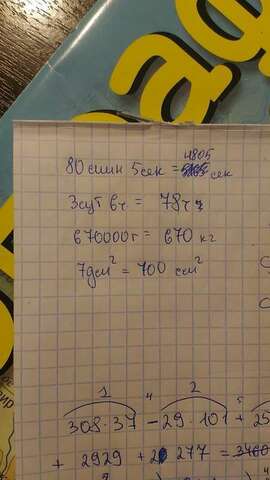 4805
80 мин 5 сек = сек
3 сут 6 ч = 78 ч
670000 г = 670 кг
7 дм² = 700 см²
1 4 2 5
308·37 - 29·101 + 25
+ 2929 + 2 277 = 3400